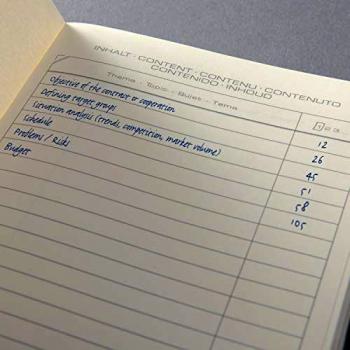 INHALT · CONTENT · CONTENU · CONTENUTO
CONTENIDO · INHOUD
Thema · Topic · Sujet · Tema
1 2 3 ...
Objective of the contract or cooperation 12
Defining target groups 26
Situation analysis (trends, competition, market volume) 45
Schedule 51
Problems / Risks 58
Budget 105